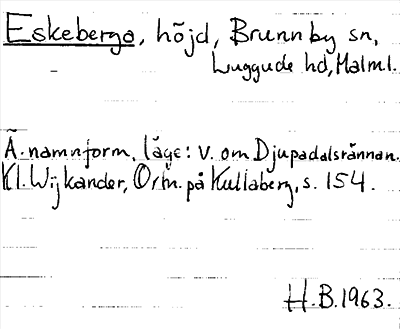 Eskeberga, höjd, Brunnby sn,
Luggude hd, Malml.
Ä. namnform, läge: v. om Djupadalsrännan.
Kl. Wijkander, Ortn. på Kullaberg, s. 154.
H.B. 1963.